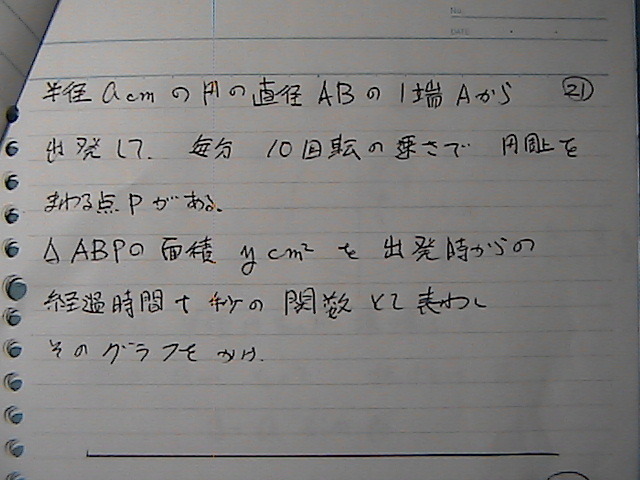 No.
DATE
半径 a cm の 円の 直径 AB の 1端 A から ㉑
出発して、毎分 10回転の 速さで 円周上を
まわる点 P が ある。
△ABPの 面積 y cm² を 出発時からの
経過時間 t 秒の 関数 として 表わし
そのグラフを かけ.